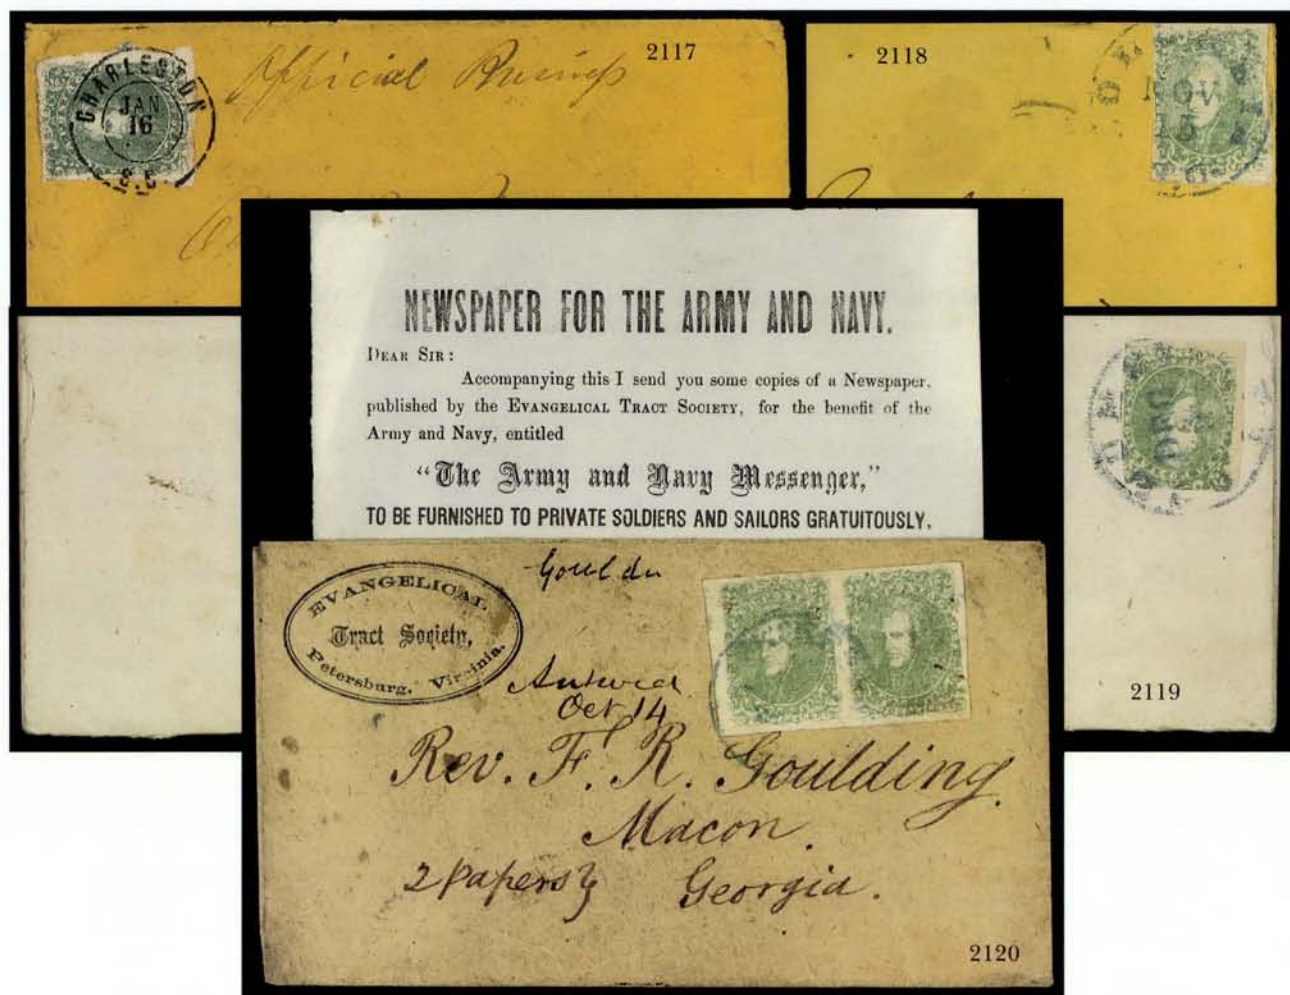 CHARLESTON
JAN
16
S.C.
Official Business
2117
2118
NOV
15
NEWSPAPER FOR THE ARMY AND NAVY.
DEAR SIR:
Accompanying this I send you some copies of a Newspaper,
published by the EVANGELICAL TRACT SOCIETY, for the benefit of the
Army and Navy, entitled
"The Army and Navy Messenger,"
TO BE FURNISHED TO PRIVATE SOLDIERS AND SAILORS GRATUITOUSLY,
DEC
2119
EVANGELICAL
Tract Society,
Petersburg, Virginia.
Oct 14
Rev. F. R. Goulding.
Macon.
2 papers
Georgia.
2120